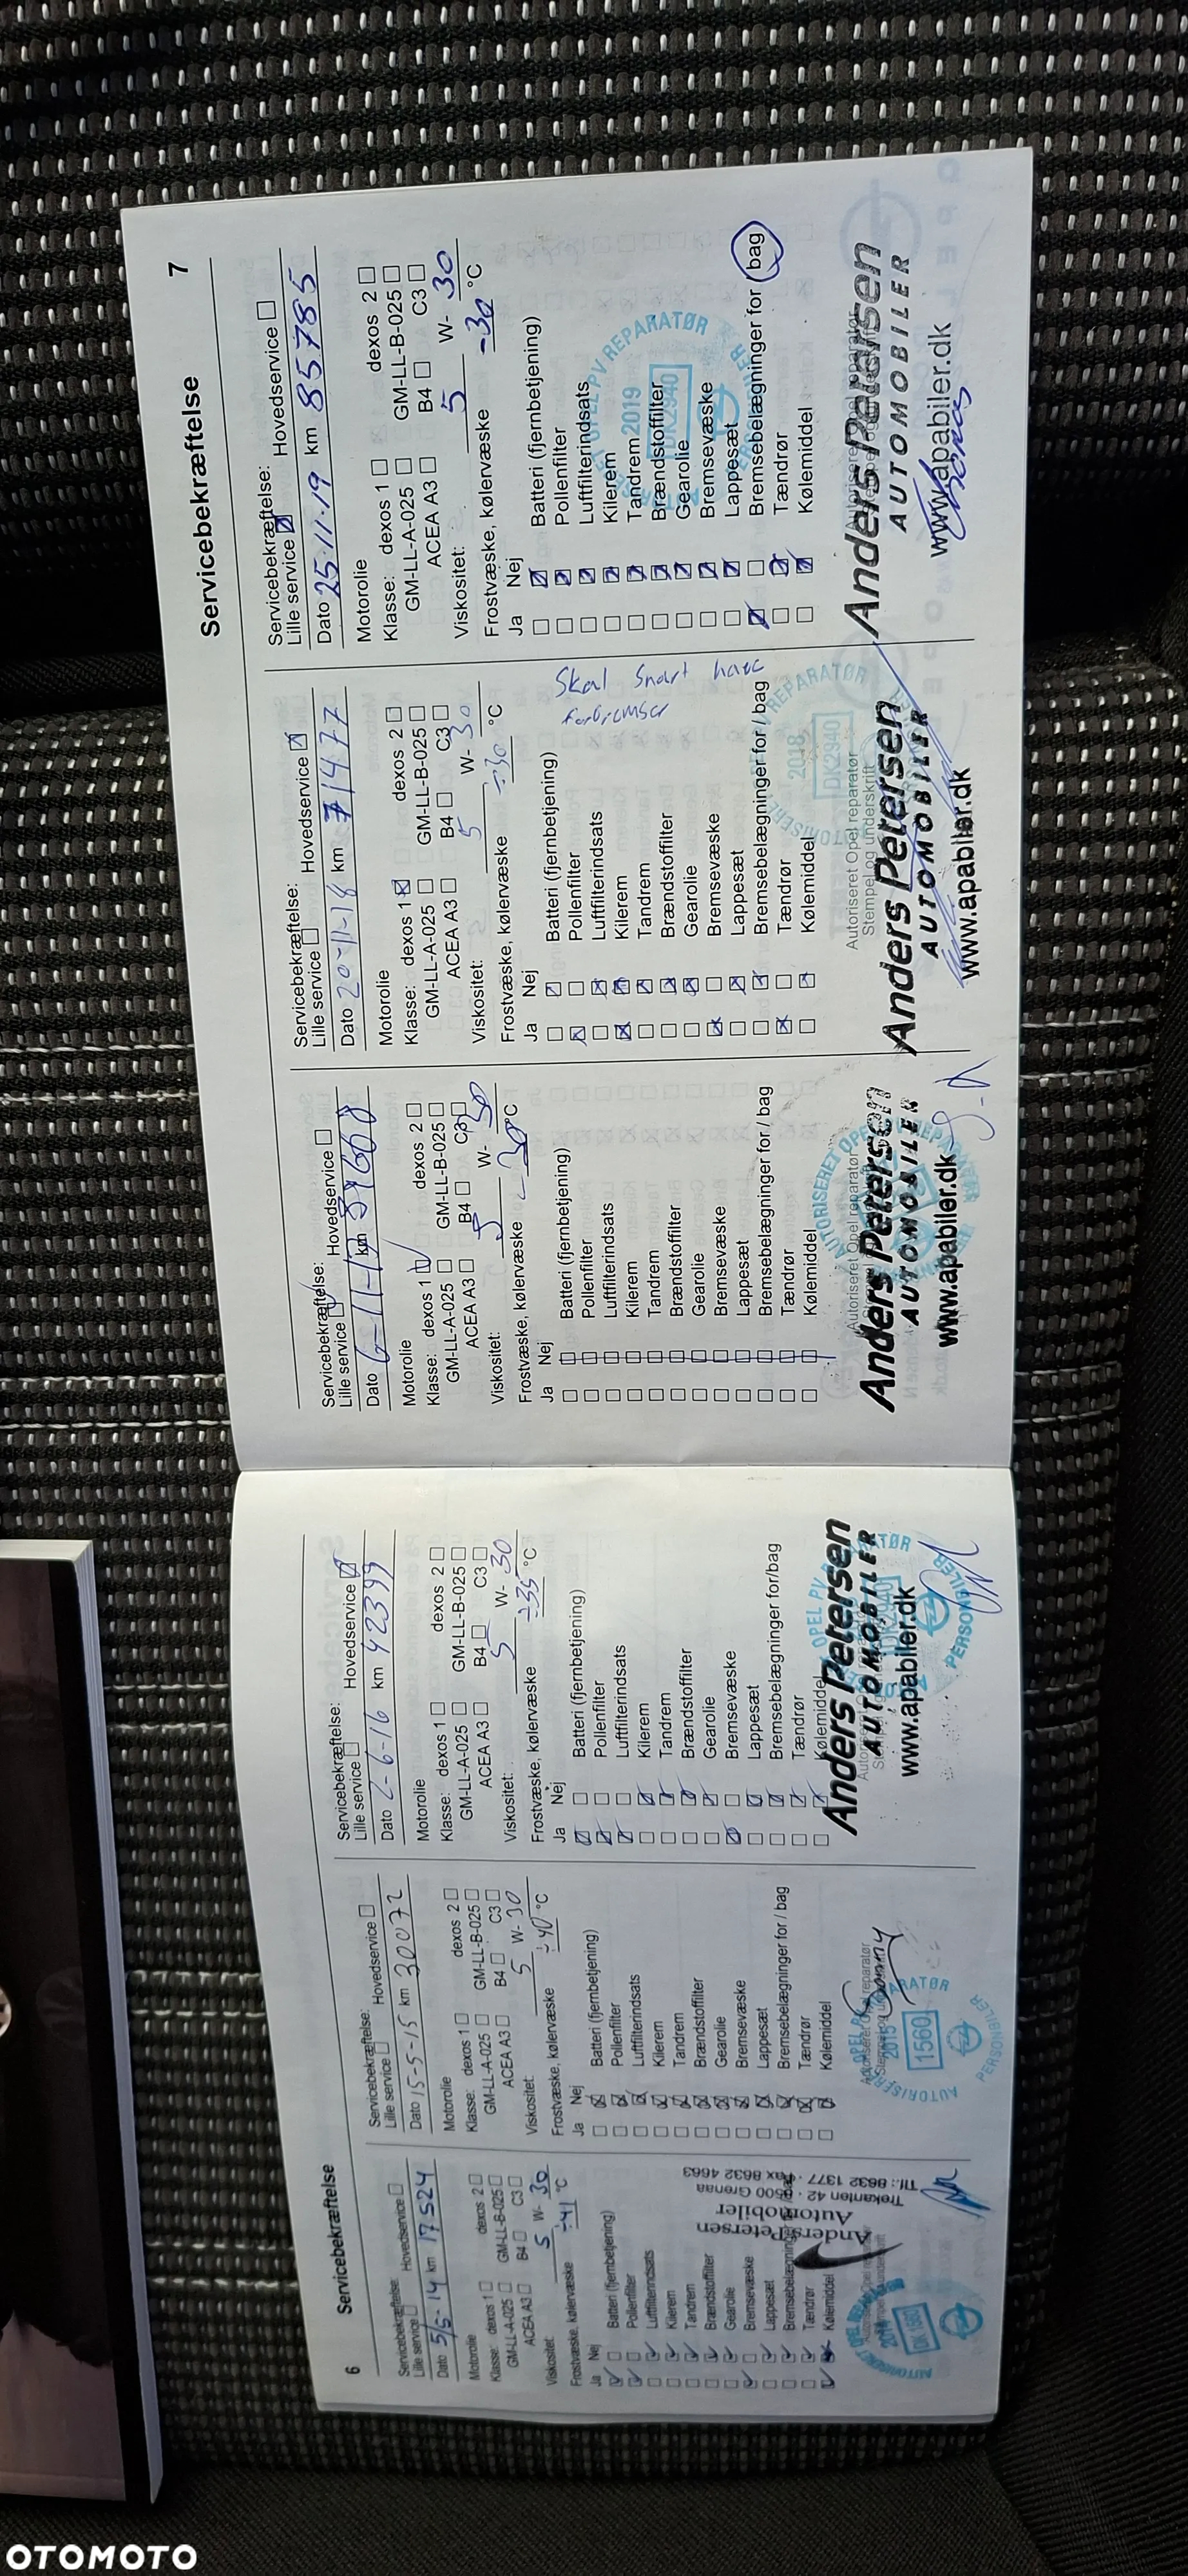 6
Servicebekræftelse
Servicebekræftelse:
Lille service Hovedservice
Dato 5/5-14 km 17524
Motorolie
Klasse: dexos 1 dexos 2
GM-LL-A-025 GM-LL-B-025
ACEA A3 B4 C3
Viskositet: 5 W- 30
Frostvæske, kølervæske ÷41 °C
Ja Nej
Batteri (fjernbetjening)
Pollenfilter
Luftfilterindsats
Kilerem
Tandrem
Brændstoffilter
Gearolie
Bremsevæske
Lappesæt
Bremsebelægninger
Tændrør
Kølemiddel
Anders Petersen
Automobiler
Trekanten 42 · 8500 Grenaa
Tlf.: 8632 1377 · Fax 8632 4663
Servicebekræftelse:
Lille service Hovedservice
Dato 15-5-15 km 30072
Motorolie
Klasse: dexos 1 dexos 2
GM-LL-A-025 GM-LL-B-025
ACEA A3 B4 C3
Viskositet: 5 W- 30
Frostvæske, kølervæske ÷40 °C
Ja Nej
Batteri (fjernbetjening)
Pollenfilter
Luftfilterindsats
Kilerem
Tandrem
Brændstoffilter
Gearolie
Bremsevæske
Lappesæt
Bremsebelægninger for / bag
Tændrør
Kølemiddel
2015
1560
AUTORISERET
PERSONBILER
Servicebekræftelse:
Lille service Hovedservice
Dato 2-6-16 km 42399
Motorolie
Klasse: dexos 1 dexos 2
GM-LL-A-025 GM-LL-B-025
ACEA A3 B4 C3
Viskositet: 5 W- 30
Frostvæske, kølervæske ÷35 °C
Ja Nej
Batteri (fjernbetjening)
Pollenfilter
Luftfilterindsats
Kilerem
Tandrem
Brændstoffilter
Gearolie
Bremsevæske
Lappesæt
Bremsebelægninger for/bag
Tændrør
Kølemiddel
Anders Petersen
AUTOMOBILER
www.apabiler.dk
PERSONBILER
7
Servicebekræftelse
Servicebekræftelse:
Lille service Hovedservice
Dato 6-11-17 km
Motorolie
Klasse: dexos 1 dexos 2
GM-LL-A-025 GM-LL-B-025
ACEA A3 B4 C3
Viskositet: 5 W- 30
Frostvæske, kølervæske -30 °C
Ja Nej
Batteri (fjernbetjening)
Pollenfilter
Luftfilterindsats
Kilerem
Tandrem
Brændstoffilter
Gearolie
Bremsevæske
Lappesæt
Bremsebelægninger for / bag
Tændrør
Kølemiddel
Autoriseret Opel reparatør
Anders Petersen
AUTOMOBILER
www.apabiler.dk
Servicebekræftelse:
Lille service Hovedservice
Dato 20-11-18 km 71477
Motorolie
Klasse: dexos 1 dexos 2
GM-LL-A-025 GM-LL-B-025
ACEA A3 B4 C3
Viskositet: 5 W- 30
Frostvæske, kølervæske ÷30 °C
Ja Nej
Skal snart have
forbremser
Batteri (fjernbetjening)
Pollenfilter
Luftfilterindsats
Kilerem
Tandrem
Brændstoffilter
Gearolie
Bremsevæske
Lappesæt
Bremsebelægninger for / bag
Tændrør
Kølemiddel
2018
DK2940
Autoriseret Opel reparatør
Stempel og underskrift
Anders Petersen
AUTOMOBILER
www.apabiler.dk
Servicebekræftelse:
Lille service Hovedservice
Dato 25-11-19 km 85785
Motorolie
Klasse: dexos 1 dexos 2
GM-LL-A-025 GM-LL-B-025
ACEA A3 B4 C3
Viskositet: 5 W- 30
Frostvæske, kølervæske -30 °C
Ja Nej
Batteri (fjernbetjening)
Pollenfilter
Luftfilterindsats
Kilerem
Tandrem
Brændstoffilter
Gearolie
Bremsevæske
Lappesæt
Bremsebelægninger for / bag
Tændrør
Kølemiddel
2019
DK2940
PV REPARATØR
Anders Petersen
AUTOMOBILER
www.apabiler.dk
OTOMOTO